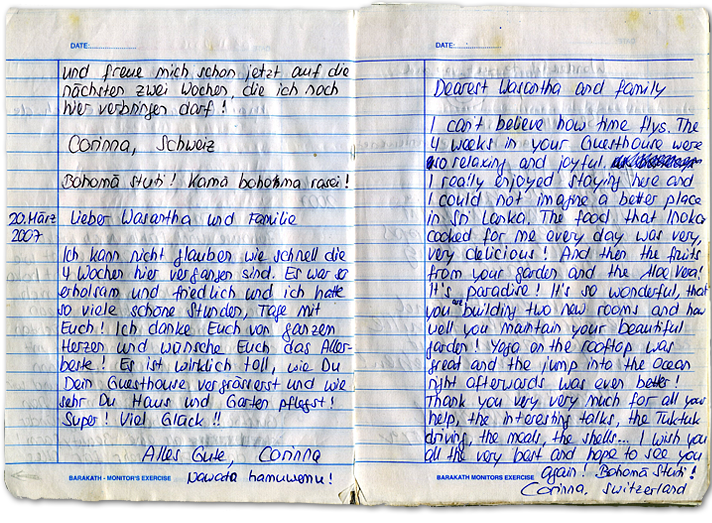 DATE:
und freue mich schon jetzt auf die
nächsten zwei Wochen, die ich noch
hier verbringen darf!
Corinna, Schweiz
Bohomā stuti! Kamā bohohma rasei!
20. März
2007
Lieber Wasantha und Familie
Ich kann nicht glauben wie schnell die
4 Wochen hier vergangen sind. Es war so
erholsam und friedlich und ich hatte
so viele schöne Stunden, Tage mit
Euch! Ich danke Euch von ganzen
Herzen und wünsche Euch das Aller-
beste! Es ist wirklich toll, wie Du
Dein Guesthouse vergrösserst und wie
sehr Du Haus und Garten pflegst!
Super! Viel Glück!!
Alles Gute, Corinna
BARAKATH - MONITOR'S EXERCISE
Nawata hamuwemu!
DATE:
Dearest Wasantha and family
I can't believe how time flys. The
4 weeks in your Guesthouse were
so relaxing and joyful.
I really enjoyed staying here and
I could not imagine a better place
in Sri Lanka. The food that Inoka
cooked for me every day was very,
very delicious! And then the fruits
from your garden and the Aloe Vera!
It's paradise! It's so wonderful, that
you are building two new rooms and how
well you maintain your beautiful
garden! Yoga on the rooftop was
great and the jump into the Ocean
right afterwards was even better!
Thank you very very much for all your
help, the interesting talks, the Tuktuk
driving, the meals, the shells... I wish you
all the very best and hope to see you
again! Bohomā stuti!
BARAKATH MONITORS EXERCISE
Corinna, Switzerland